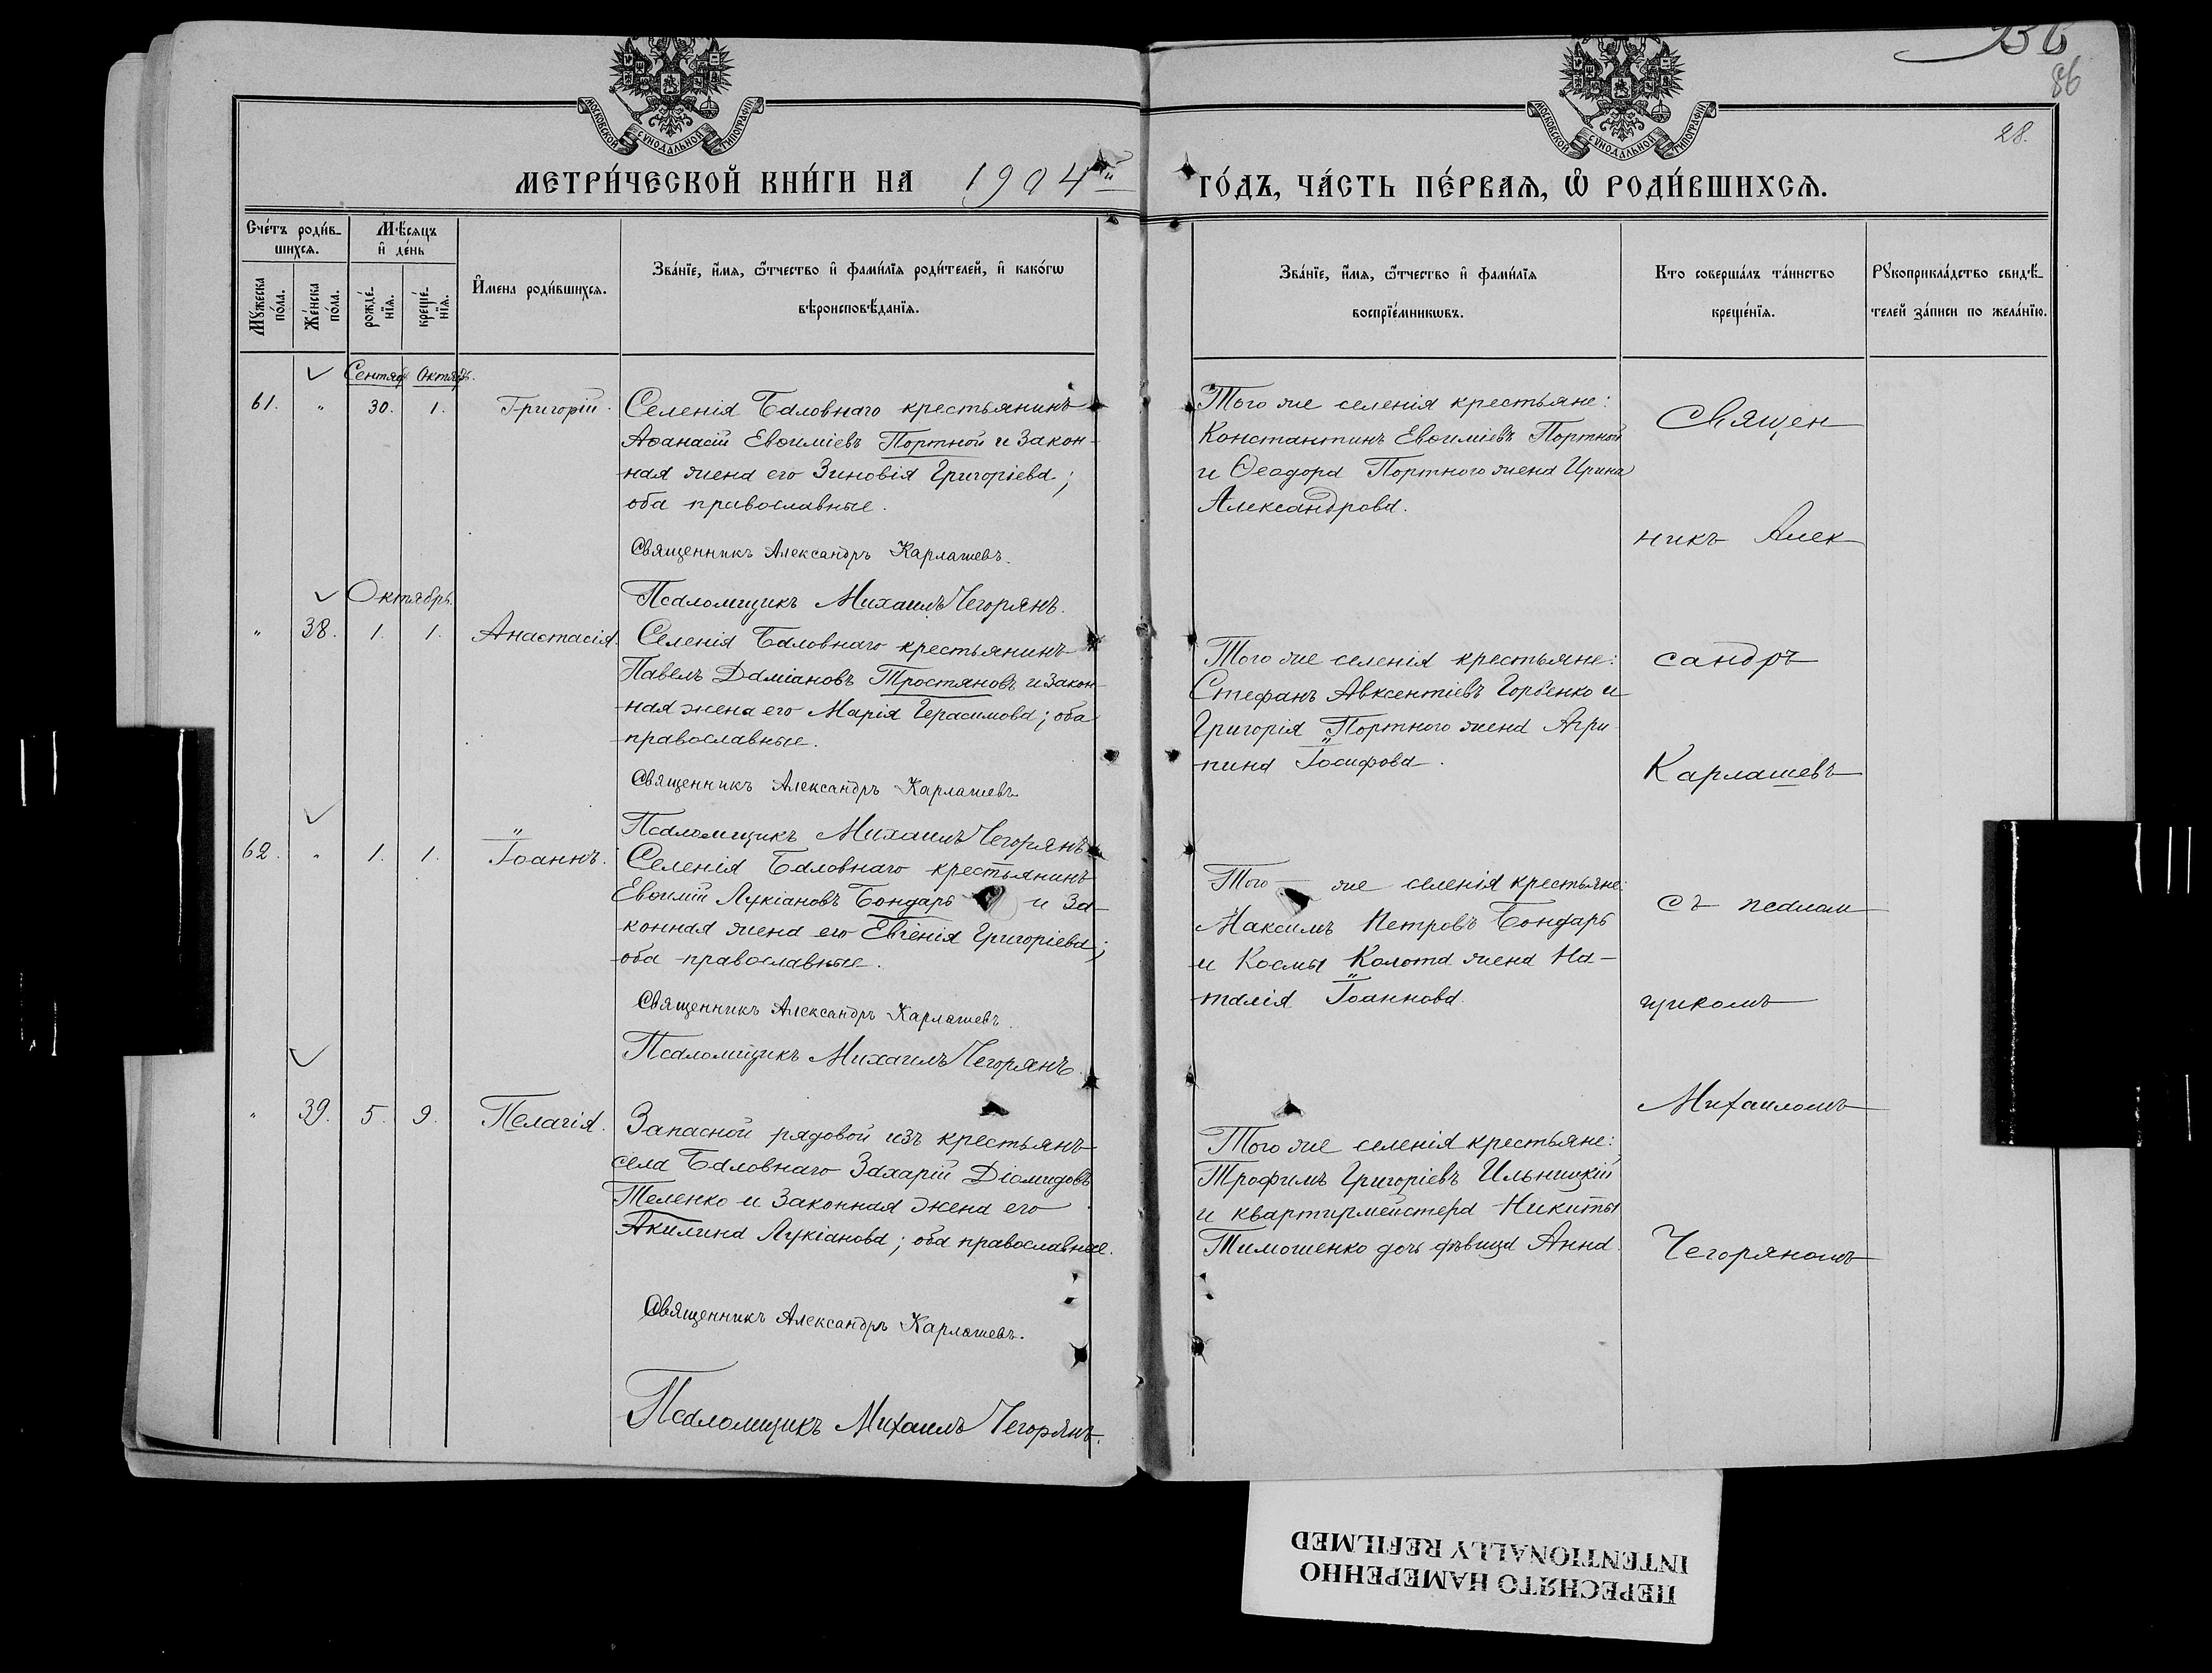 136
86
28.
МОСКОВСКОЙ СУНОДАЛЬНОЙ ТИПОГРАФІИ
МОСКОВСКОЙ СУНОДАЛЬНОЙ ТИПОГРАФІИ
МЕТРИ́ЧЕСКОЙ КНИ́ГИ НА 1904й ГО́ДЪ, ЧА́СТЬ ПЕ́РВАѦ, Ѡ҆ РОДИ́ВШИХСѦ.
Сче́тъ роди́в-
шихсѧ.
Мꙋжеска по́ла.
Же́нска по́ла.
Мѣ́сѧцъ
и҆ де́нь
рожде́-
нїѧ.
креще́-
нїѧ.
И҆мена роди́вшихсѧ.
Зва́нїе, и҆́мѧ, ѻ҆́тчество и҆ фами́лїѧ роди́телей, и҆ како́гѡ
вѣроисповѣ́данїѧ.
Зва́нїе, и҆́мѧ, ѻ҆́тчество и҆ фами́лїѧ
воспрїе́мникѡвъ.
Кто соверша́лъ та́инство
креще́нїѧ.
Рꙋкоприкла́дство свидѣ́-
телей за́писи по жела́нїю.
Сентяб. Октяб.
61. " 30. 1. Григорій.
Селенія Баловнаго крестьянинъ
Аѳанасій Евѳиміевъ Портной и закон-
ная жена его Зиновія Григоріева;
оба православные.
Священникъ Александръ Карлашевъ.
Псаломщикъ Михаилъ Чегорянъ.
Того же селенія крестьяне:
Константинъ Евѳиміевъ Портной
и Ѳеодора Портного жена Ирина
Александрова.
Октябрь.
" 38. 1. 1. Анастасія.
Селенія Баловнаго крестьянинъ
Павелъ Даміановъ Тростяновъ и закон-
ная жена его Марія Герасимова; оба
православные.
Священникъ Александръ Карлашевъ
Псаломщикъ Михаилъ Чегорянъ
Того же селенія крестьяне:
Стефанъ Авксентіевъ Горбенко и
Григорія Портного жена Агри-
пина Іосифова.
62. " 1. 1. Іоаннъ.
Селенія Баловнаго крестьянинъ
Евѳимій Лукіановъ Бондарь и за-
конная жена его Евгенія Григоріева;
оба православные.
Священникъ Александръ Карлашевъ.
Псаломщикъ Михаилъ Чегорянъ.
Того же селенія крестьяне:
Максимъ Петровъ Бондарь
и Космы Колота жена На-
талія Іоаннова.
" 39. 5. 9. Пелагія.
Запасной рядовой изъ крестьянъ
села Баловнаго Захарій Діомидовъ
Теленко и законная жена его
Акилина Лукіанова; оба православные.
Священникъ Александръ Карлашевъ.
Псаломщикъ Михаилъ Чегорянъ.
Того же селенія крестьяне:
Трофимъ Григоріевъ Ильницкій
и квартирмейстера Никиты
Тимошенко дочь дѣвица Анна.
Священ
никъ Алек
сандръ
Карлашевъ
съ псалом
щикомъ
Михаиломъ
Чегоряномъ
ПЕРЕСНЯТО НАМЕРЕННО
INTENTIONALLY REFILMED